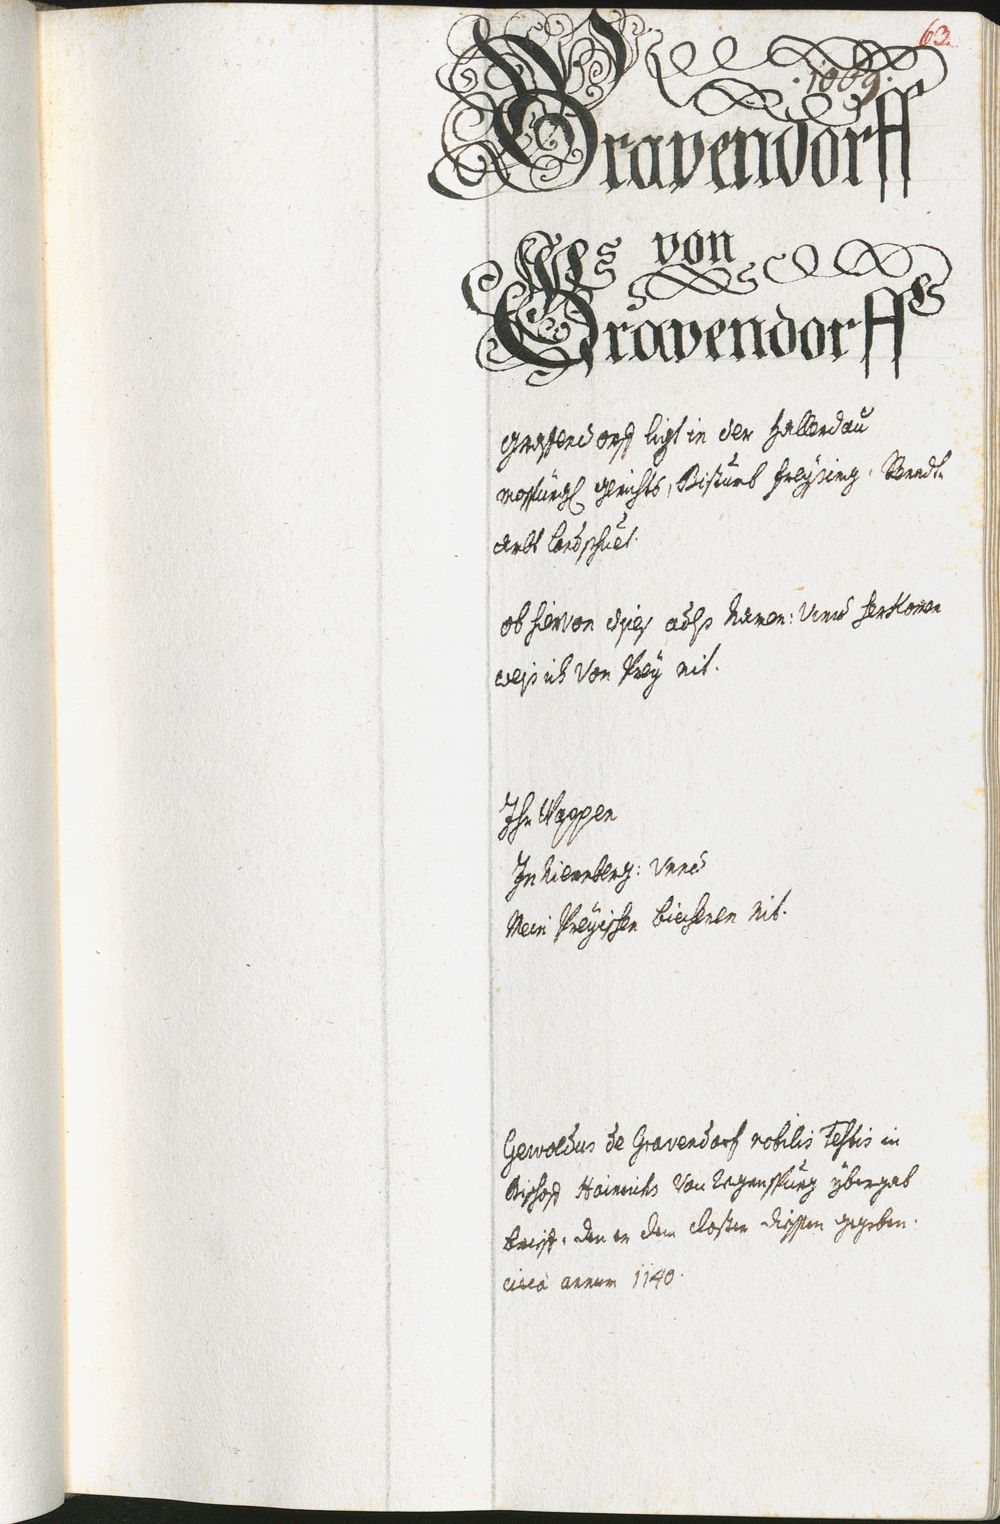 63.
1009.
Gravendorff
Als von
Gravendorff
Graffendorff ligt in der Hallerdau
Mospurg gerichts, Bistumb Freysing, Rendt-
ambt Landshuet.
ob hievon dises adls Namen: Vnnd herkomen
weis ich Von Prey nit.
Ihr Wappen
In Niernberg: Vnnd
Mein Preyischen biechern nit.
Gewoldus de Gravendorf nobilis Testis in
Bischoff Hainrichs Von Regenspurg ybergab
brieff, den er dem Closter diessen gegeben.
circa annum 1140.